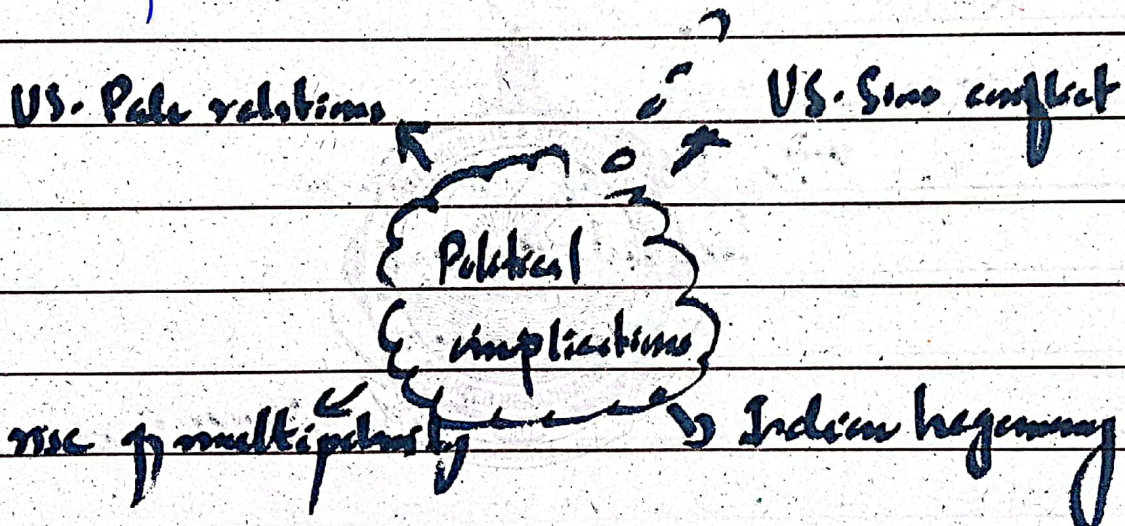 US. Pak relations
US. Sino conflict
Political
implications
rise of multipolarity
Indian hegemony